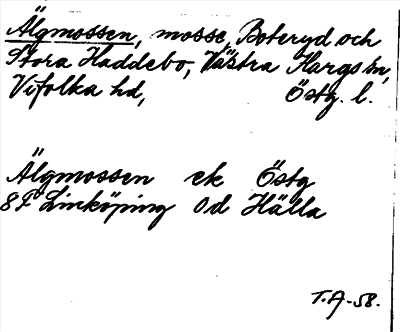 Älgmossen, mosse, Boteryd och
Stora Haddebo, Västra Hargs sn,
Vifolka hd, Östg. l.
Älgmossen ek Östg
8F Linköping 0d Hälla
T.A-58.